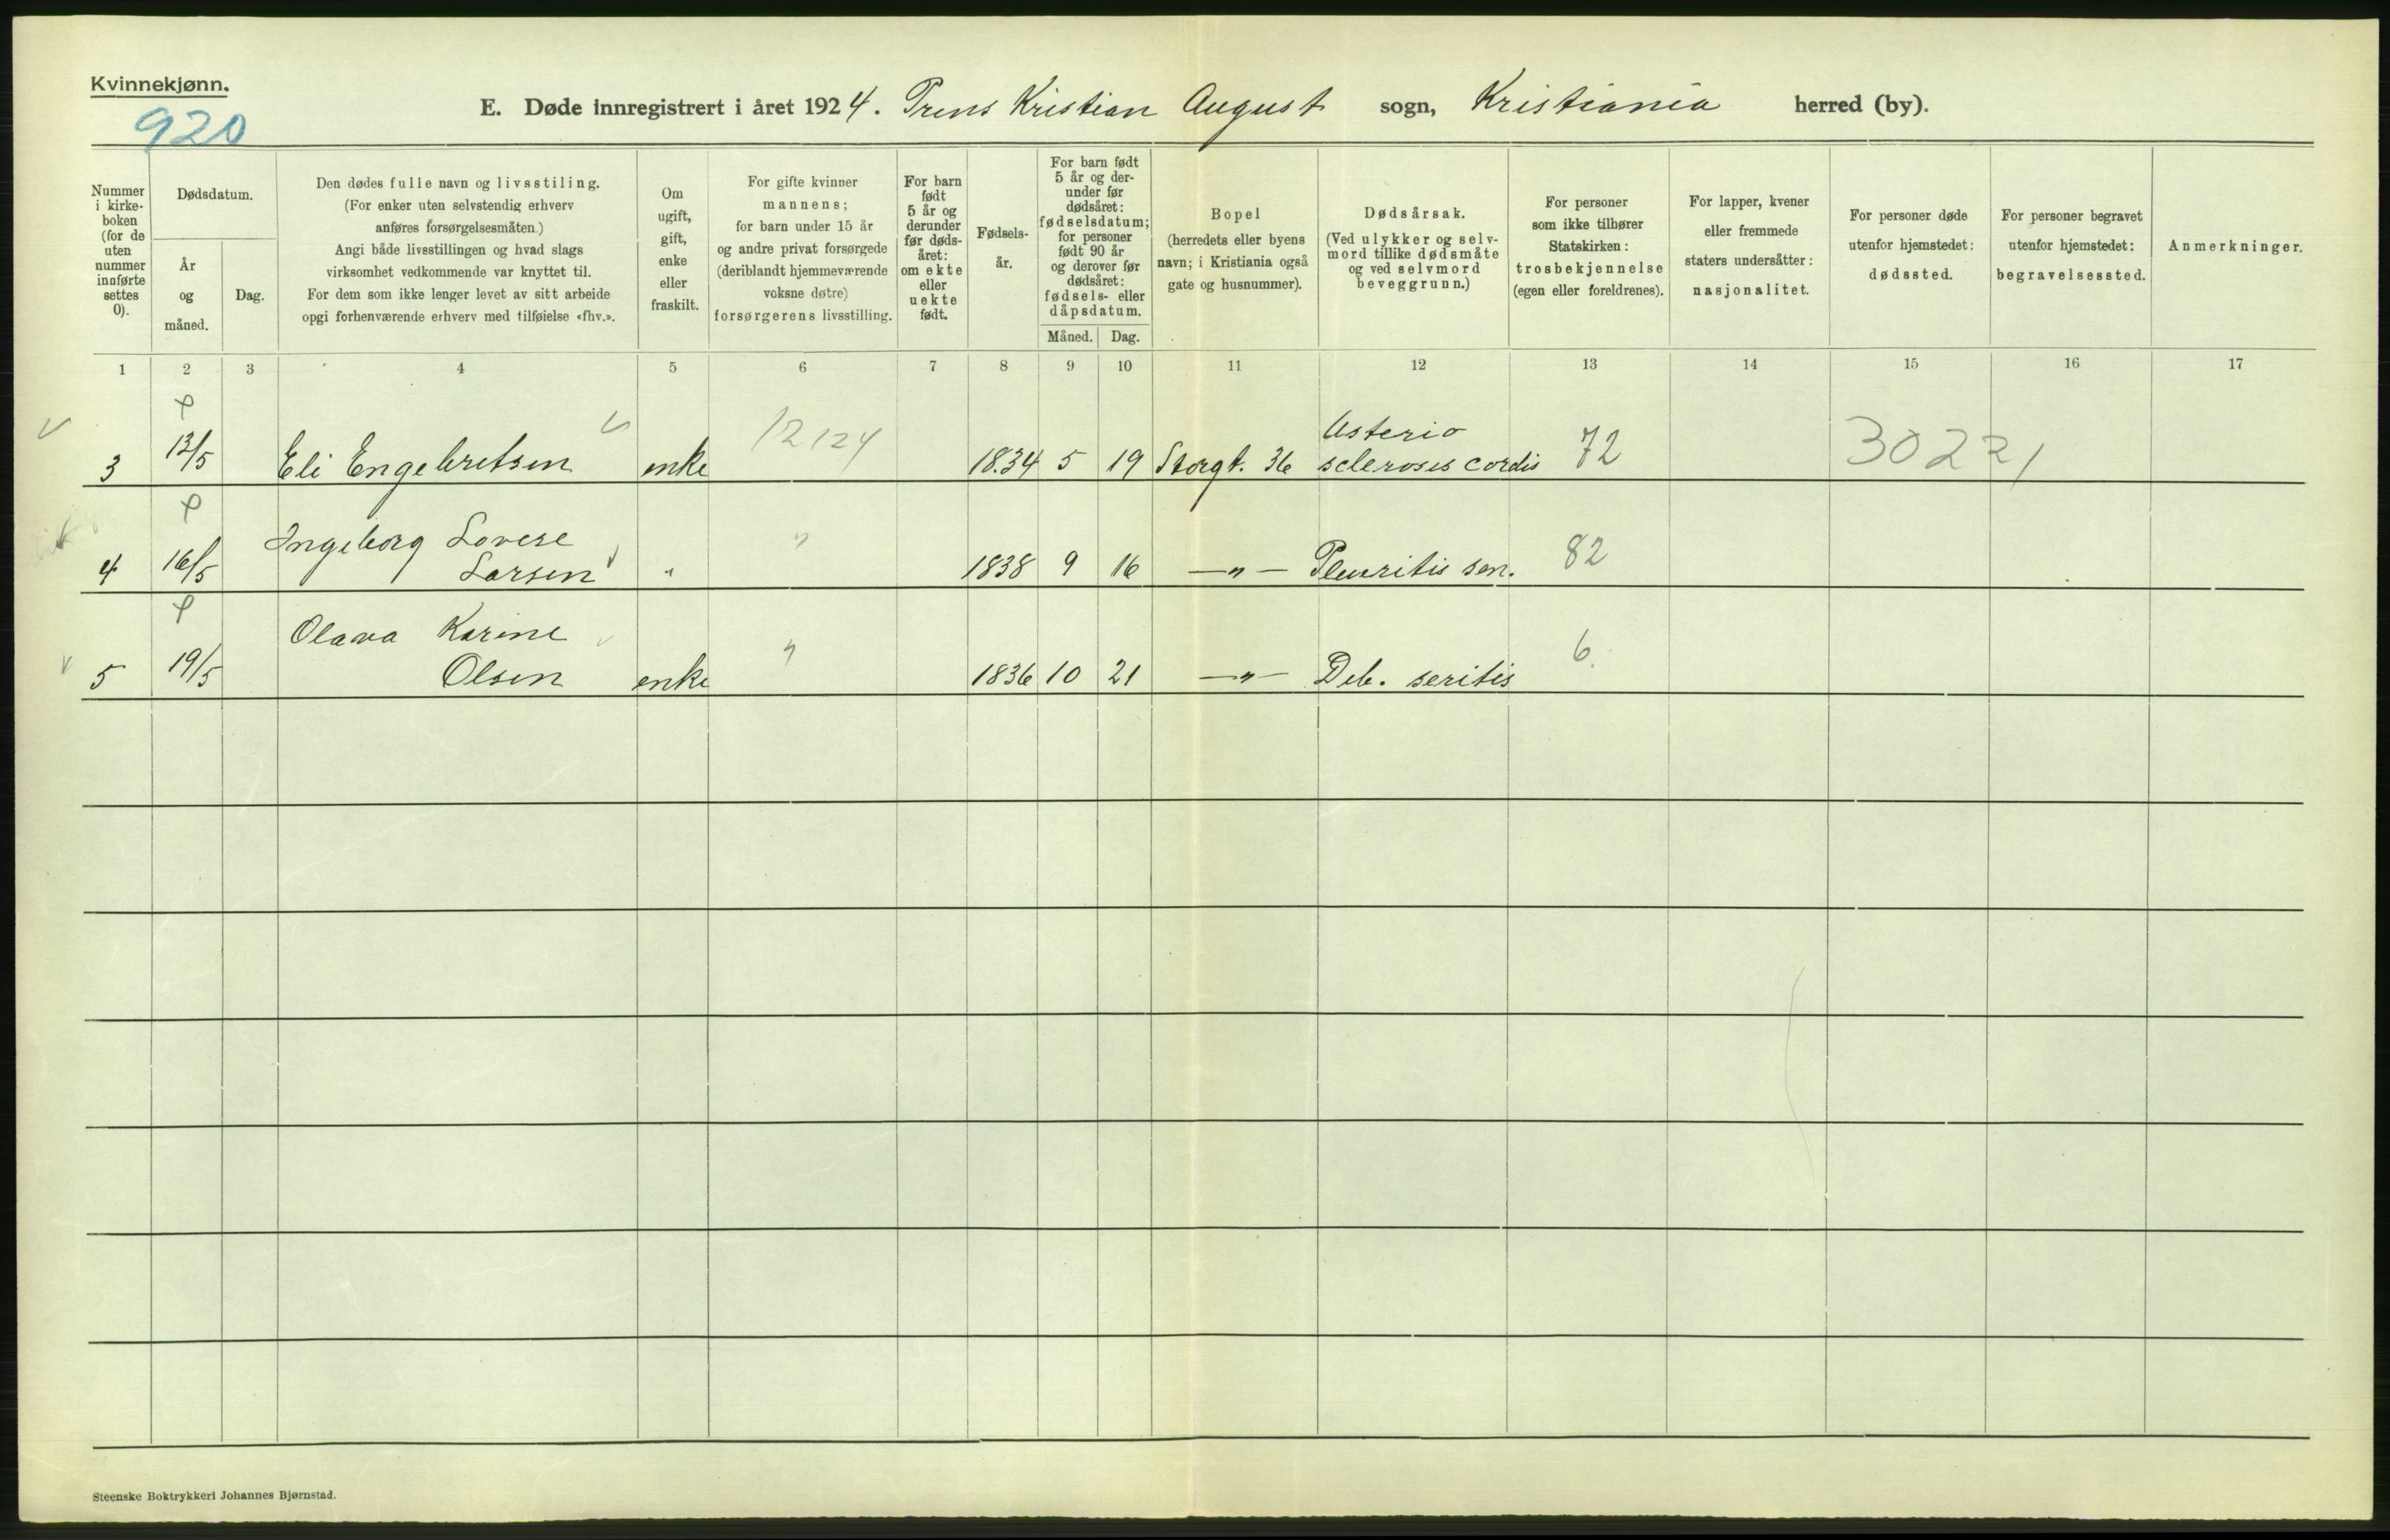 Kvinnekjønn.
920
E. Døde innregistrert i året 1924. Prins Kristian August sogn, Kristiania herred (by).
Nummer i kirke-boken (for de uten nummer innførte settes 0).
Dødsdatum.
År og måned.
Dag.
Den dødes fulle navn og livsstiling.
(For enker uten selvstendig erhverv
anføres forsørgelsesmåten.)
Angi både livsstillingen og hvad slags
virksomhet vedkommende var knyttet til.
For dem som ikke lenger levet av sitt arbeide
opgi forhenværende erhverv med tilføielse «fhv.».
Om ugift, gift, enke eller fraskilt.
For gifte kvinner
mannens;
for barn under 15 år
og andre privat forsørgede
(deriblandt hjemmeværende
voksne døtre)
forsørgerens livsstilling.
For barn født 5 år og derunder før døds-året: om ekte eller uekte født.
Fødsels-år.
For barn født
5 år og der-
under før
dødsåret:
fødselsdatum;
for personer
født 90 år
og derover før
dødsåret:
fødsels- eller
dåpsdatum.
Måned. Dag.
Bopel
(herredets eller byens
navn; i Kristiania også
gate og husnummer).
Dødsårsak.
(Ved ulykker og selv-
mord tillike dødsmåte
og ved selvmord
beveggrunn.)
For personer
som ikke tilhører
Statskirken:
trosbekjennelse
(egen eller foreldrenes).
For lapper, kvener
eller fremmede
staters undersåtter:
nasjonalitet.
For personer døde
utenfor hjemstedet:
dødssted.
For personer begravet
utenfor hjemstedet:
begravelsessted.
Anmerkninger.
1 2 3 4 5 6 7 8 9 10 11 12 13 14 15 16 17
Asterio
3 13/5 Eli Engebretsen enke 12124 1834 5 19 Storgt. 36 scleroses cordis 72 30221
Ingeborg Lovise
4 16/5 Larsen " " 1838 9 16 —"— Pleuritis sen. 82
Olava Karine
5 19/5 Olsen enke " 1836 10 21 —"— Deb. seritis 6.
Steenske Boktrykkeri Johannes Bjørnstad.